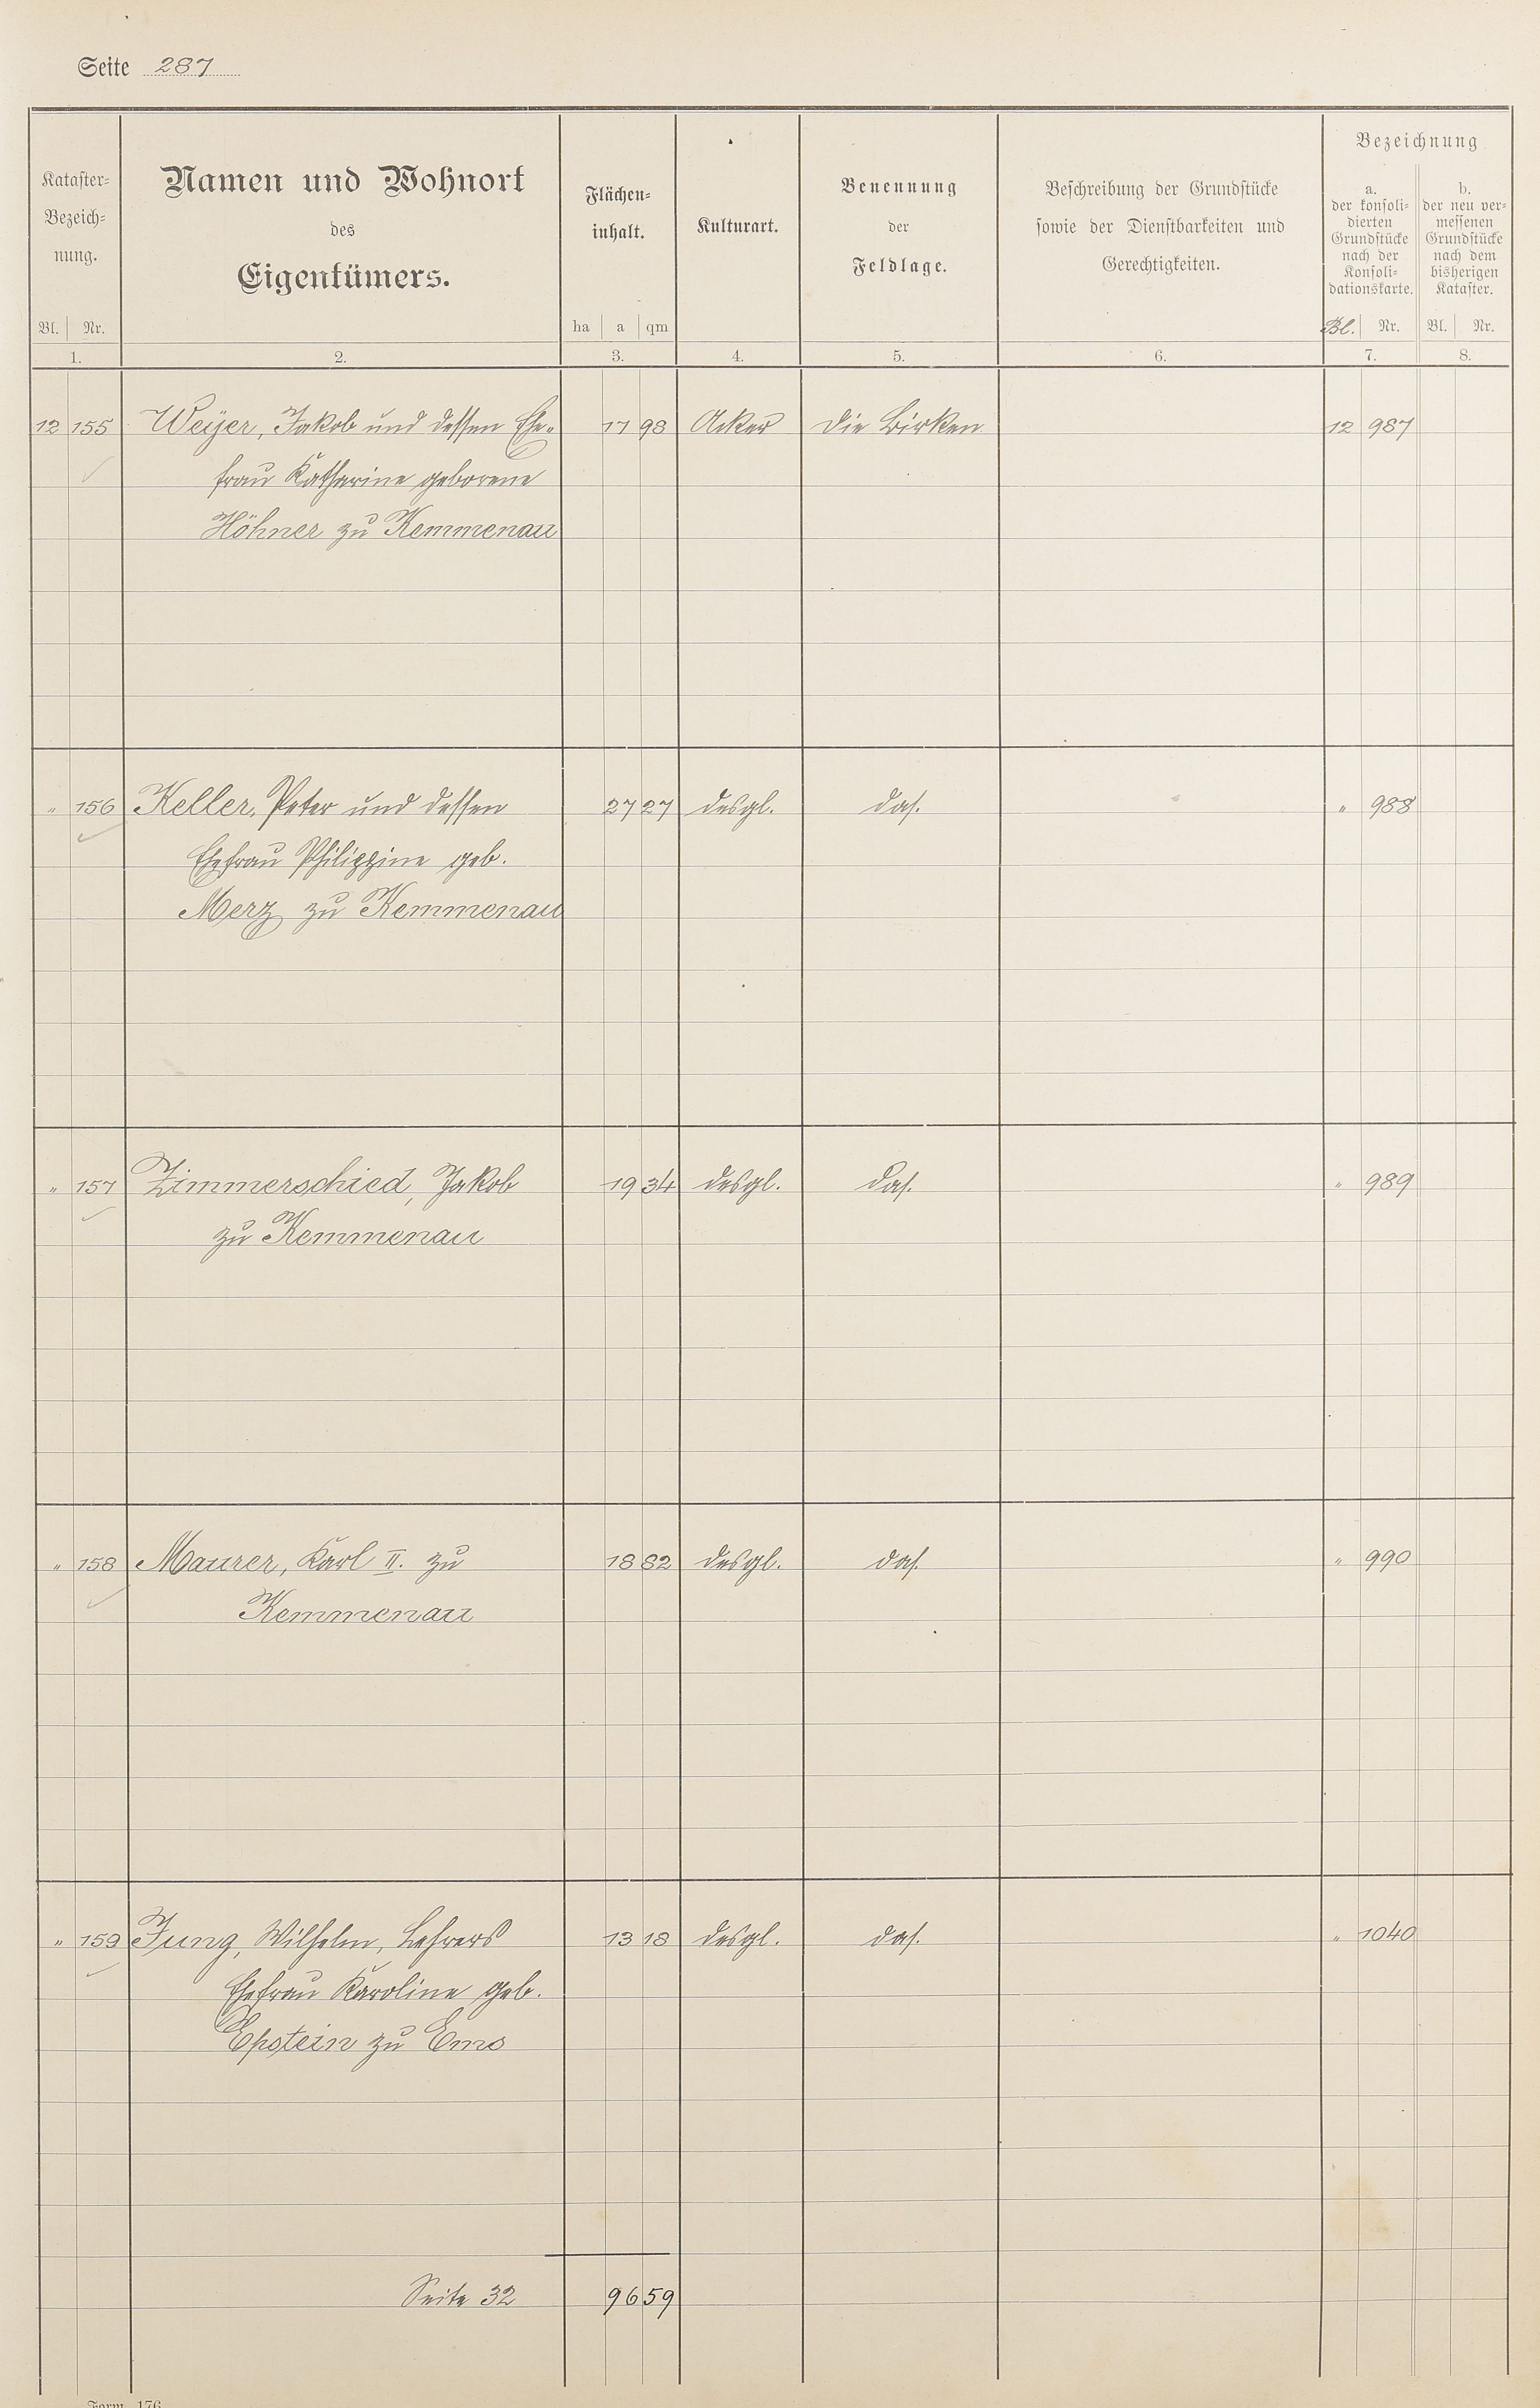 Seite 287
Kataster-
Bezeich-
nung.
Bl. Nr.
1.
Namen und Wohnort
des
Eigentümers.
2.
Flächen-
inhalt.
ha a qm
3.
Kulturart.
4.
Benennung
der
Feldlage.
5.
Beschreibung der Grundstücke
sowie der Dienstbarkeiten und
Gerechtigkeiten.
6.
Bezeichnung
a.
der konsoli-
dierten
Grundstücke
nach der
Konsoli-
dationskarte.
Bl. Nr.
7.
b.
der neu ver-
messenen
Grundstücke
nach dem
bisherigen
Kataster.
Bl. Nr.
8.
12 155 Weyer, Jakob und dessen Ehe- 17 98 Acker Die Birken 12 987
frau Katharine geborene
Höhner zu Kemmenau
" 156 Keller, Peter und dessen 27 27 desgl. das. " 988
Ehefrau Philippine geb.
Merz zu Kemmenau
" 157 Zimmerschied, Jakob 19 34 desgl. das. " 989
zu Kemmenau
" 158 Maurer, Karl II. zu 18 82 desgl. das. " 990
Kemmenau
" 159 Jung, Wilhelm, Lehrers 13 18 desgl. das. " 1040
Ehefrau Karoline geb.
Epstein zu Ems
Seite 32 96 59
Form. 176